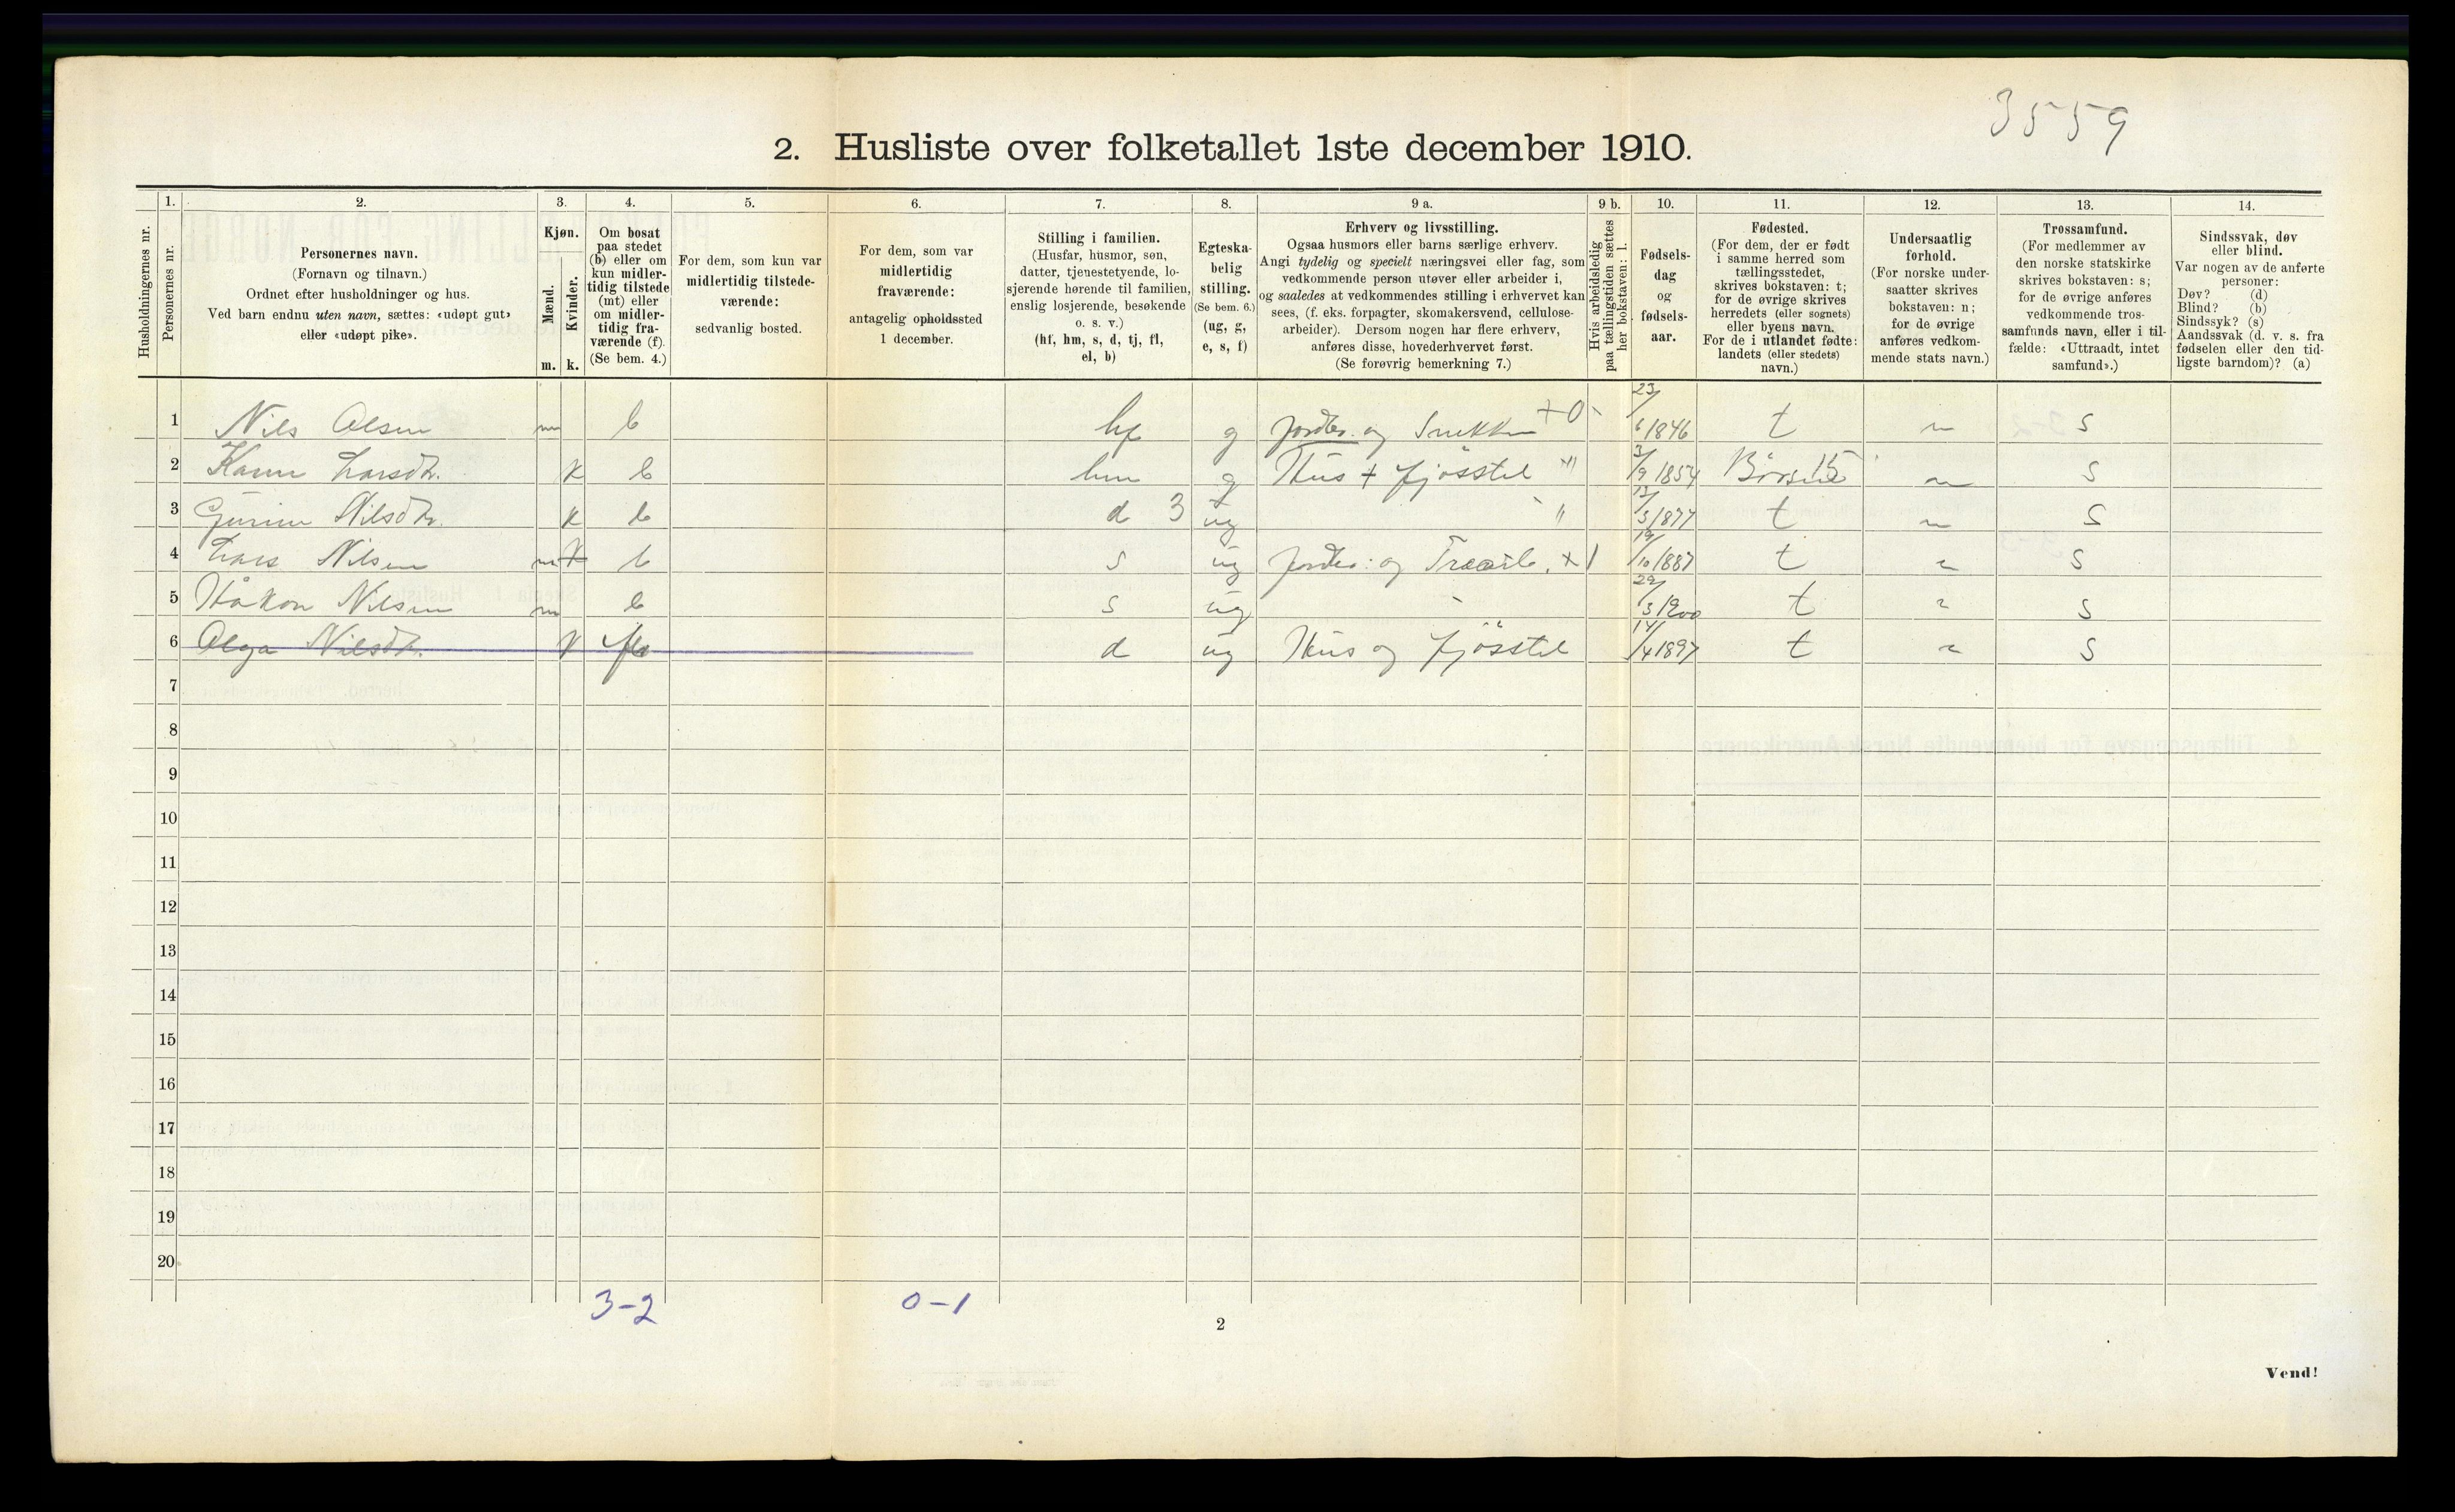 3559
2. Husliste over folketallet 1ste december 1910.
Husholdningernes nr.
1. Personernes nr.
2. Personernes navn.
(Fornavn og tilnavn.)
Ordnet efter husholdninger og hus.
Ved barn endnu uten navn, sættes: «udøpt gut»
eller «udøpt pike».
3. Kjøn.
Mænd. m.
Kvinder. k.
4. Om bosat
paa stedet
(b) eller om
kun midler-
tidig tilstede
(mt) eller
om midler-
tidig fra-
værende (f).
(Se bem. 4.)
5. For dem, som kun var
midlertidig tilstede-
værende:
sedvanlig bosted.
6. For dem, som var
midlertidig
fraværende:
antagelig opholdssted
1 december.
7. Stilling i familien.
(Husfar, husmor, søn,
datter, tjenestetyende, lo-
sjerende hørende til familien,
enslig losjerende, besøkende
o. s. v.)
(hf, hm, s, d, tj, fl,
el, b)
8. Egteska-
belig
stilling.
(Se bem. 6.)
(ug, g,
e, s, f)
9 a. Erhverv og livsstilling.
Ogsaa husmors eller barns særlige erhverv.
Angi tydelig og specielt næringsvei eller fag, som
vedkommende person utøver eller arbeider i,
og saaledes at vedkommendes stilling i erhvervet kan
sees, (f. eks. forpagter, skomakersvend, cellulose-
arbeider). Dersom nogen har flere erhverv,
anføres disse, hovederhvervet først.
(Se forøvrig bemerkning 7.)
9 b. Hvis arbeidsledig
paa tællingstiden sættes
her bokstaven: l.
10. Fødsels-
dag
og
fødsels-
aar.
11. Fødested.
(For dem, der er født
i samme herred som
tællingsstedet,
skrives bokstaven: t;
for de øvrige skrives
herredets (eller sognets)
eller byens navn.
For de i utlandet fødte:
landets (eller stedets)
navn.)
12. Undersaatlig
forhold.
(For norske under-
saatter skrives
bokstaven: n;
for de øvrige
anføres vedkom-
mende stats navn.)
13. Trossamfund.
(For medlemmer av
den norske statskirke
skrives bokstaven: s;
for de øvrige anføres
vedkommende tros-
samfunds navn, eller i til-
fælde: «Uttraadt, intet
samfund».)
14. Sindssvak, døv
eller blind.
Var nogen av de anførte
personer:
Døv? (d)
Blind? (b)
Sindssyk? (s)
Aandssvak (d. v. s. fra
fødselen eller den tid-
ligste barndom)? (a)
1 Nils Olsen m b hf g jordbr. og Snekker +0 23/6 1846 t n s
2 Karen Larsdtr. k b hm g Hus + fjösstel " 3/9 1854 15 n s
3 Nilsdtr. k b d 3 ug " 13/3 1877 t n s
4 Lars Nilsen m k b s ug jordbr. og Træarb. x 1 19/10 1887 t n s
5 Håkon Nilsen m b s ug 29/3 1900 t n s
6 Olga Nilsdtr. k d ug Hus og fjösstel 14/4 1897 t n s
7
8
9
10
11
12
13
14
15
16
17
18
19
20
3-2 0-1
2
Vend!